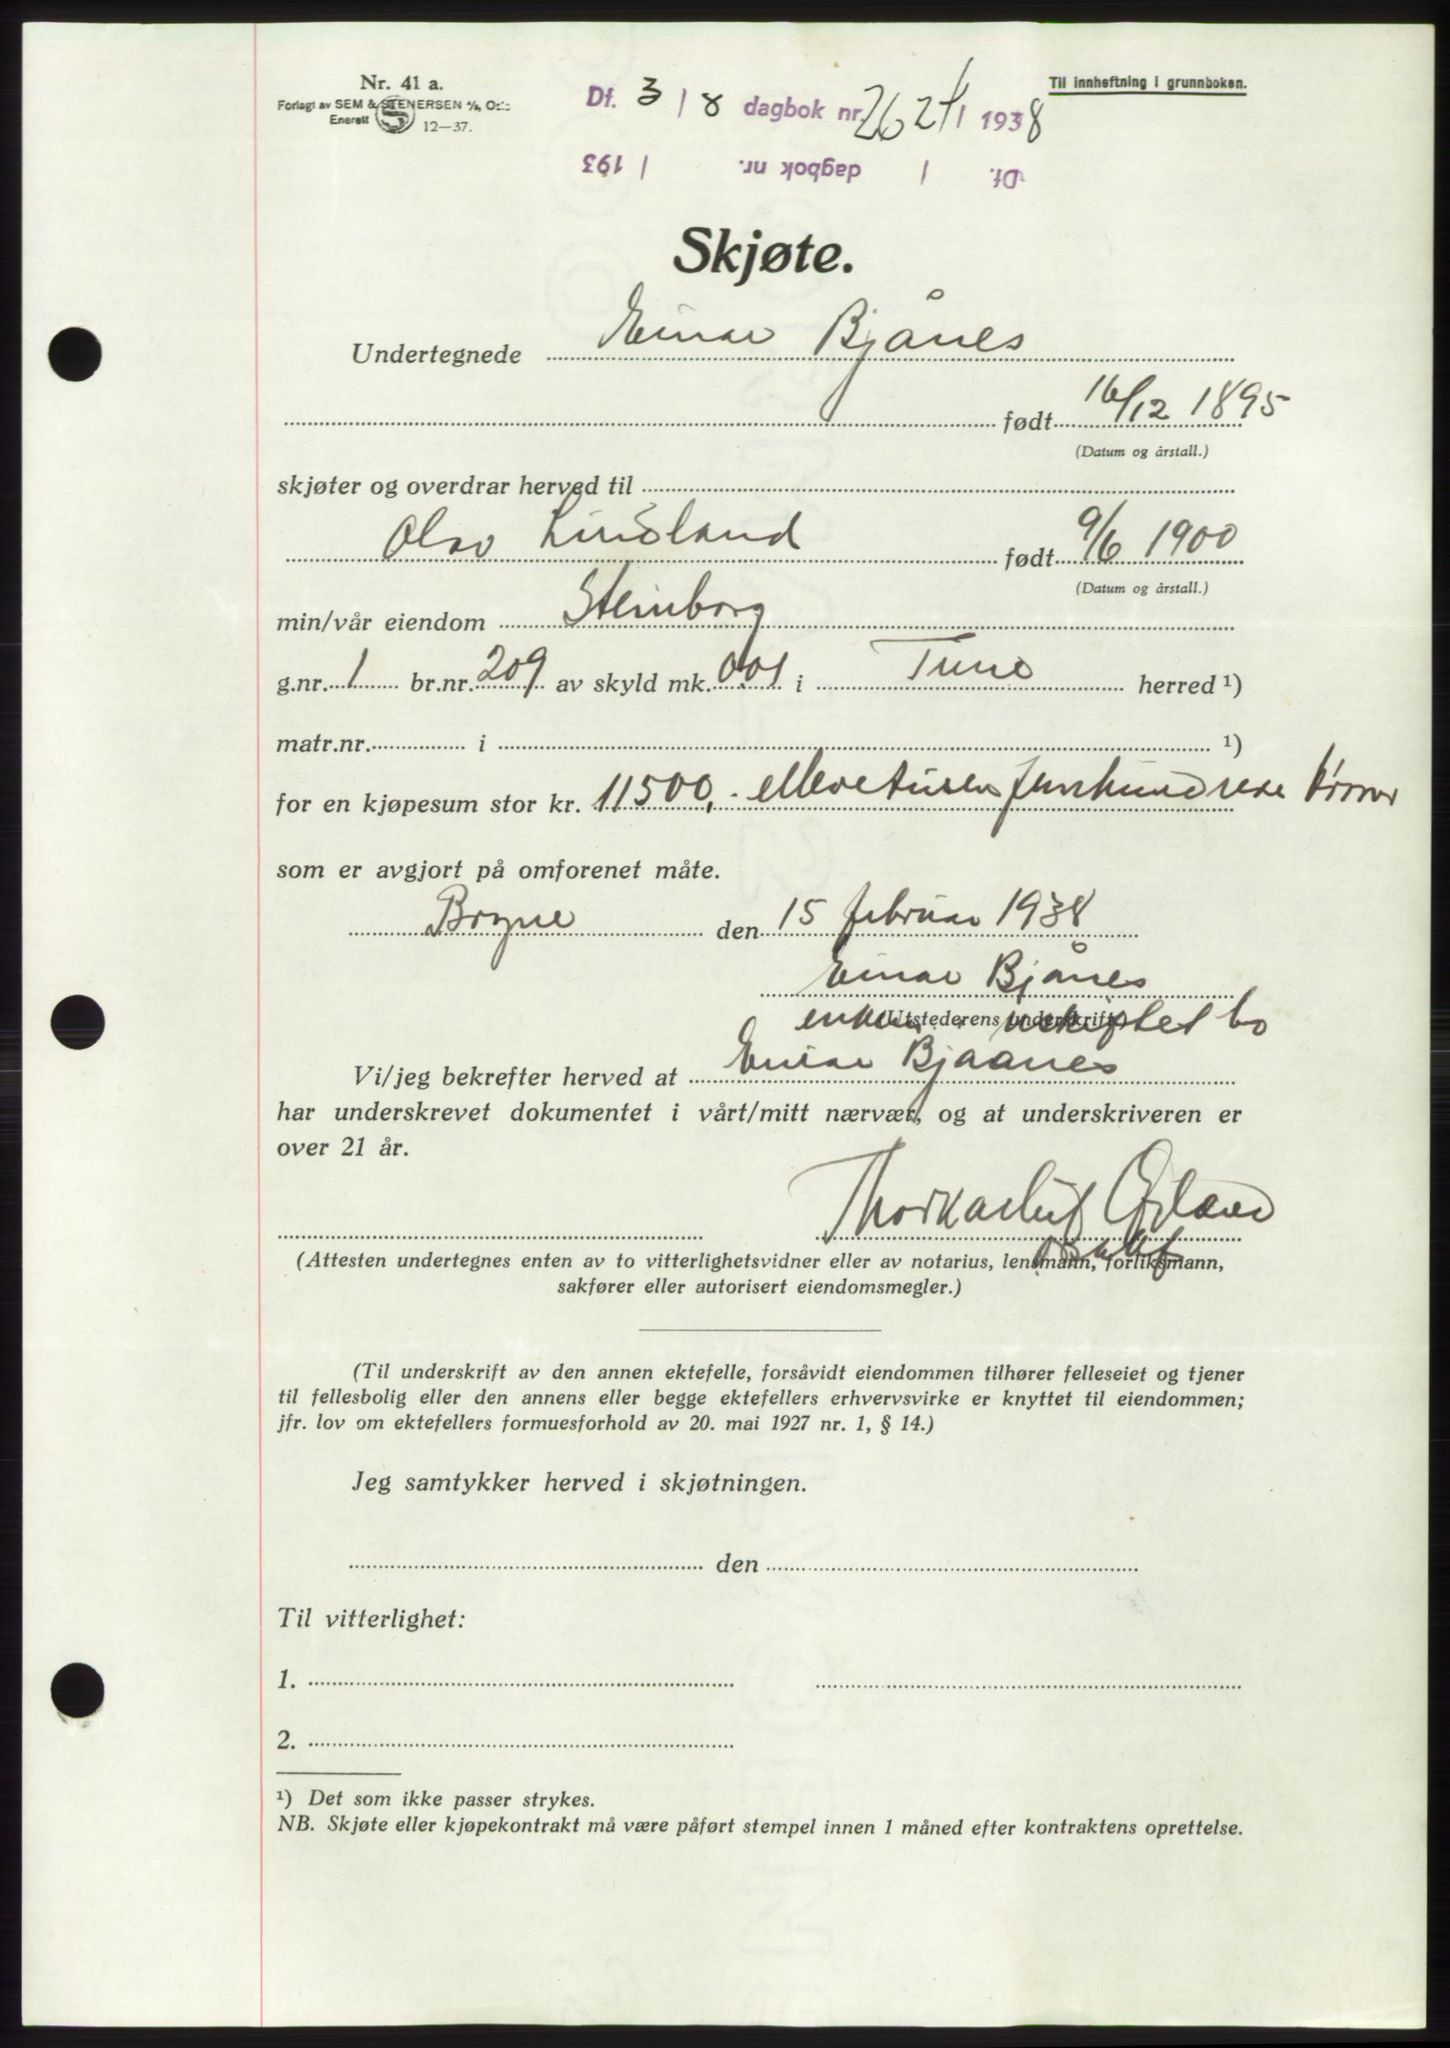 Nr. 41 a.
Forlagt av SEM & STENERSEN A/S, Oslo
Enerett
12—37.
Df. 3 / 8 dagbok nr. 2624 / 1938
Til innheftning i grunnboken.
Df. / dagbok nr. / 193
Skjøte.
Undertegnede Einar Bjånes
født 16/12 1895
(Datum og årstall.)
skjøter og overdrar herved til
Olav Lindland født 9/6 1900
(Datum og årstall.)
min/vår eiendom Steinborg
g.nr. 1 br.nr. 209 av skyld mk. 0.01 i Time herred ¹)
matr.nr. i ¹)
for en kjøpesum stor kr. 11500,- ellevetusenfemhundrede kroner
som er avgjort på omforenet måte.
Bryne den 15 februar 1938
Einar Bjånes
(Utstederens underskrift)
uskiftet bo
Vi/jeg bekrefter herved at Einar Bjaanes
har underskrevet dokumentet i vårt/mitt nærvær, og at underskriveren er
over 21 år.
(Attesten undertegnes enten av to vitterlighetsvidner eller av notarius, lensmann, forliksmann,
sakfører eller autorisert eiendomsmegler.)
(Til underskrift av den annen ektefelle, forsåvidt eiendommen tilhører felleseiet og tjener
til fellesbolig eller den annens eller begge ektefellers erhvervsvirke er knyttet til eiendommen;
jfr. lov om ektefellers formuesforhold av 20. mai 1927 nr. 1, § 14.)
Jeg samtykker herved i skjøtningen.
den
Til vitterlighet:
1.
2.
¹) Det som ikke passer strykes.
NB. Skjøte eller kjøpekontrakt må være påført stempel innen 1 måned efter kontraktens oprettelse.